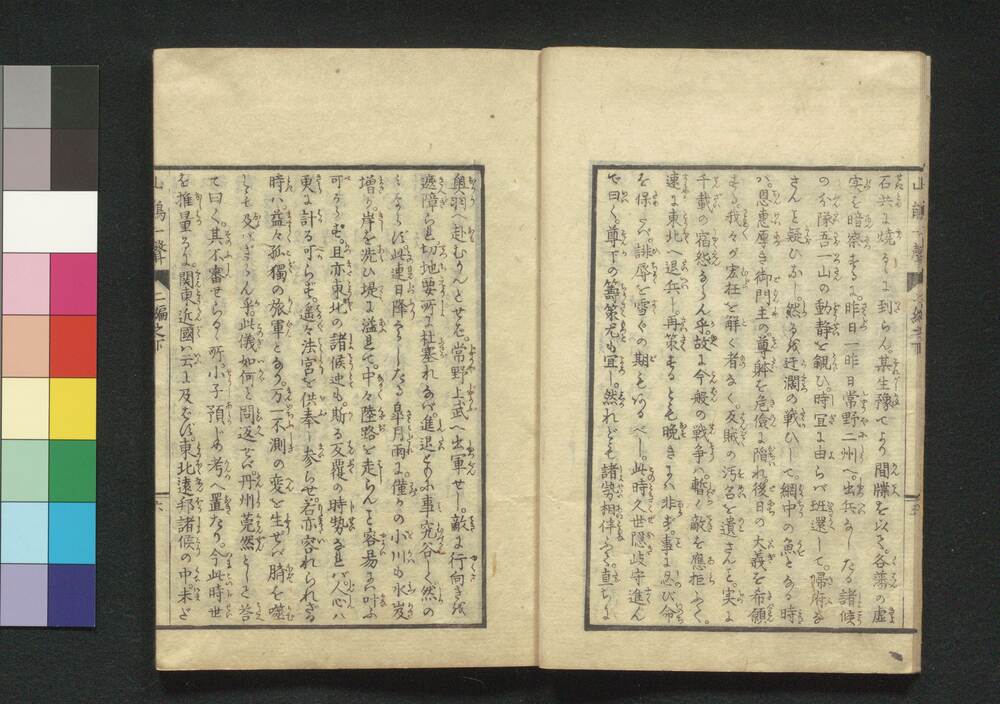 石共に焼るゝに到らん。某生豫てより間牒を以て。各藩の虚
実を暗察するに。昨日一昨日常野二州へ。出兵なしたる諸候
の小隊吾一山の動静を覗ひ。時宜に由らバ班還して。帰府を
さんと疑ひなし。然るを迂濶の戦ひして網中の魚となる時
ハ。恩恵厚き御門主の尊躰を危儉に陥れ。後日の大義を希願
する。我々が寃枉を解く者なく。反賊の汚名を遺さんと。実に
千載の宿怨なるらん乎。故に今般の戦争ハ。暫く敵を應拒なく。
速に東北へ退兵し。再策するとも晩きにハ非ず。事に忍び命
を保たバ。誹辱を雪ぐの期もあるべし。此時久世隠岐守進ん
で曰く。尊下の籌策尤も宜し。然れども諸勢相伴ふて。直ちに
奥羽へ赴むかんとせバ。常野上武へ出軍せし。敵に行向き
遮障られ切地要所に杜塞れなバ。進退まに事究谷しく然の
みならず。此連日降なしたる皐月雨に。僅かの小川も水炭
増り。岸を洗ひ堤に溢れて。中々陸路を走らんこと容易にハ叶ふ
可からず。且亦東北の諸候迚も。斯る反覆の時勢なれバ。人心ハ
更に計る可らず。遥々法宮を供奉し参らせ。若亦容れられざる
時ハ。益々孤獨の旅軍となり。万一不測の変を生ぜバ。臍を噬
とも及バざらん乎。此儀如何と問返せバ。丹州莞然として答
て曰く。其不審せらるゝ所。小子預じめ考へ置たり。今此時世
を推量るに。関東近國ハ云に及バず。東北遠邦諸候の中。未だ
山鵑一聲
二編之下
六